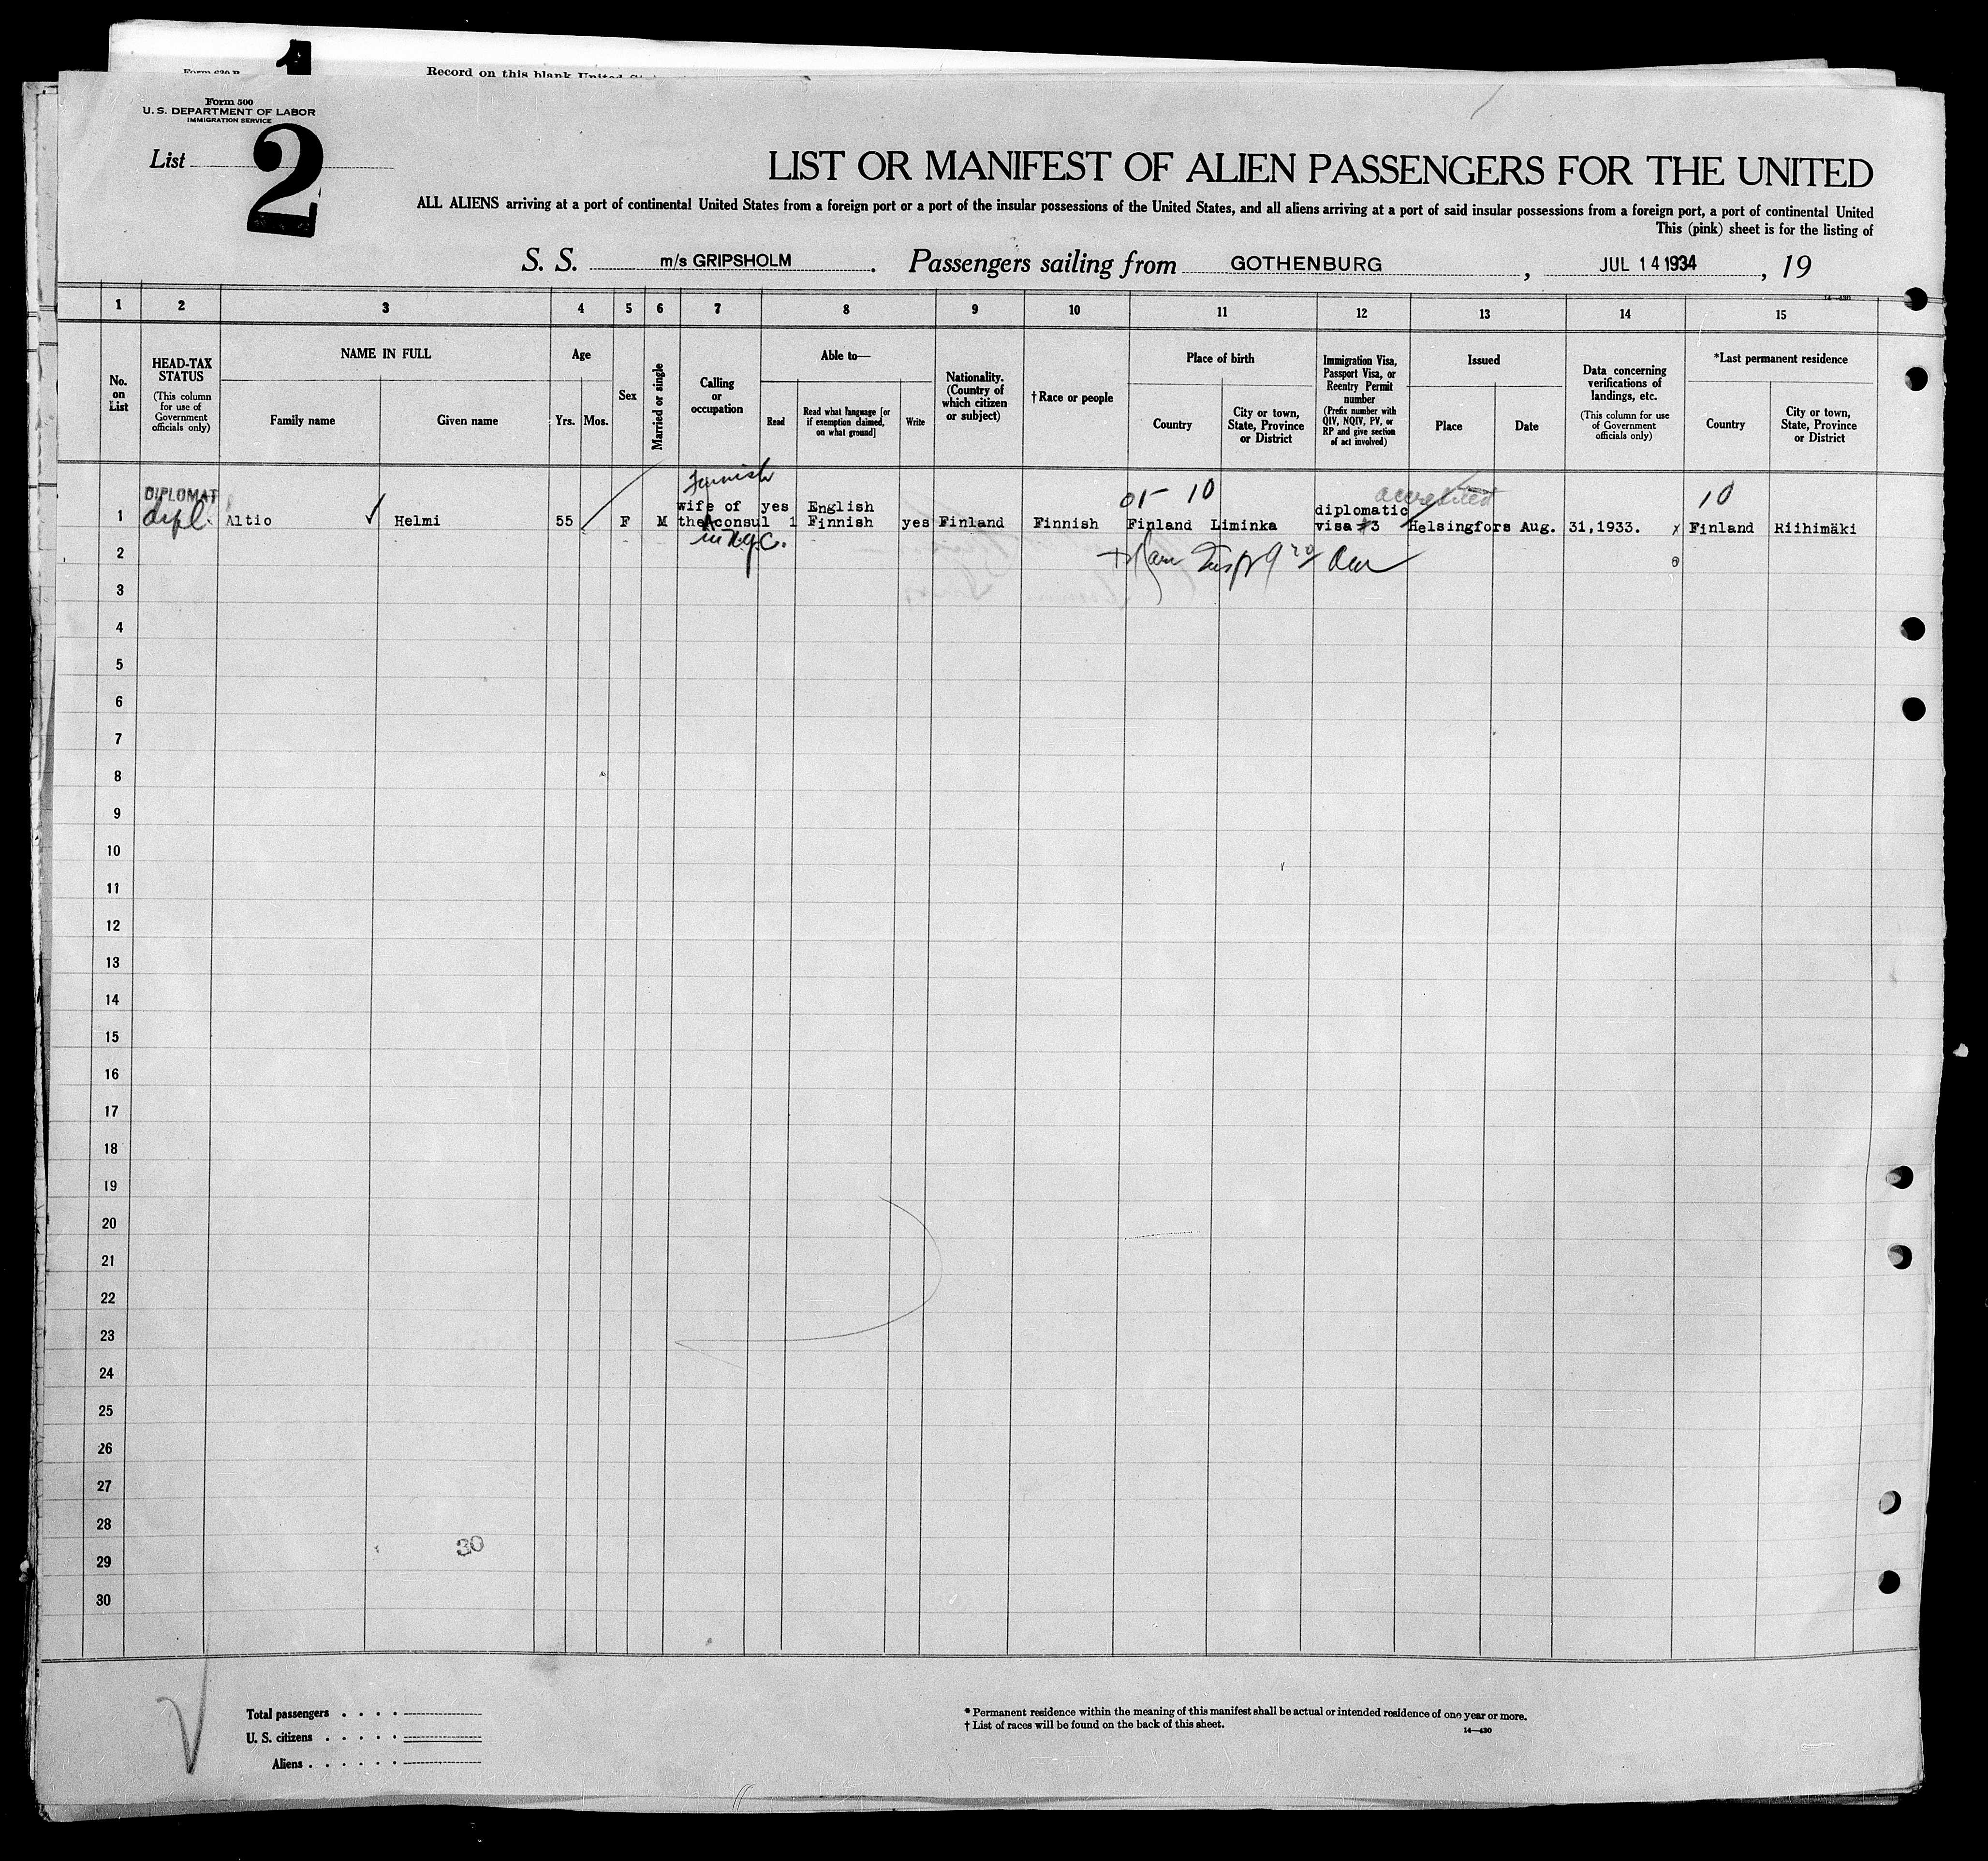 Form 630 B
Record on this blank United
Form 500
U. S. DEPARTMENT OF LABOR
IMMIGRATION SERVICE
List
2
LIST OR MANIFEST OF ALIEN PASSENGERS FOR THE UNITED
ALL ALIENS arriving at a port of continental United States from a foreign port or a port of the insular possessions of the United States, and all aliens arriving at a port of said insular possessions from a foreign port, a port of continental United
This (pink) sheet is for the listing of
S. S. m/s GRIPSHOLM. Passengers sailing from GOTHENBURG, JUL 14 1934, 19
14—430
1 2 3 4 5 6 7 8 9 10 11 12 13 14 15
No. on List
HEAD-TAX STATUS
(This column for use of Government officials only)
NAME IN FULL
Family name
Given name
Age
Yrs. Mos.
Sex
Married or single
Calling or occupation
Able to—
Read
Read what language [or if exemption claimed, on what ground]
Write
Nationality. (Country of which citizen or subject)
† Race or people
Place of birth
Country
City or town, State, Province or District
Immigration Visa, Passport Visa, or Reentry Permit number
(Prefix number with QIV, NQIV, PV, or RP and give section of act involved)
Issued
Place
Date
Data concerning verifications of landings, etc.
(This column for use of Government officials only)
*Last permanent residence
Country
City or town, State, Province or District
Finnish
DIPLOMAT
01- 10
accredited
10
wife of yes English diplomatic
1 dipl. Altio ✓ Helmi 55 F M the consul 1 Finnish yes Finland Finnish Finland Liminka visa #3 Helsingfors Aug. 31,1933. x Finland Riihimäki
in N.Y.C.
2
3
4
5
6
7
8
9
10
11
12
13
14
15
16
17
18
19
20
21
22
23
24
25
26
27
28
29
30
30
Total passengers
U. S. citizens
Aliens
* Permanent residence within the meaning of this manifest shall be actual or intended residence of one year or more.
† List of races will be found on the back of this sheet.
14—430